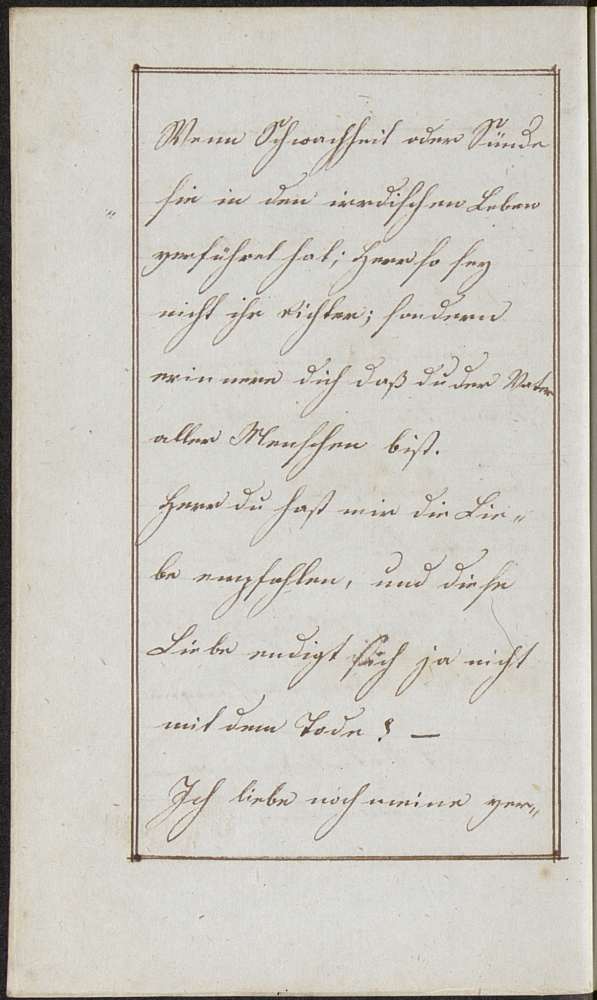 Wenn Schwachheit oder Sünde
sie in den irrdischen Leben
verführet hat; Herr so sey
nicht ihr Richter; sondern
erinnere dich daß du der Vater
aller Menschen bist.
Herr du hast mir die Lie„
be empfohlen, und diese
Liebe endigt sich ja nicht
mit dem Tode! —
Ich liebe noch meine ver„